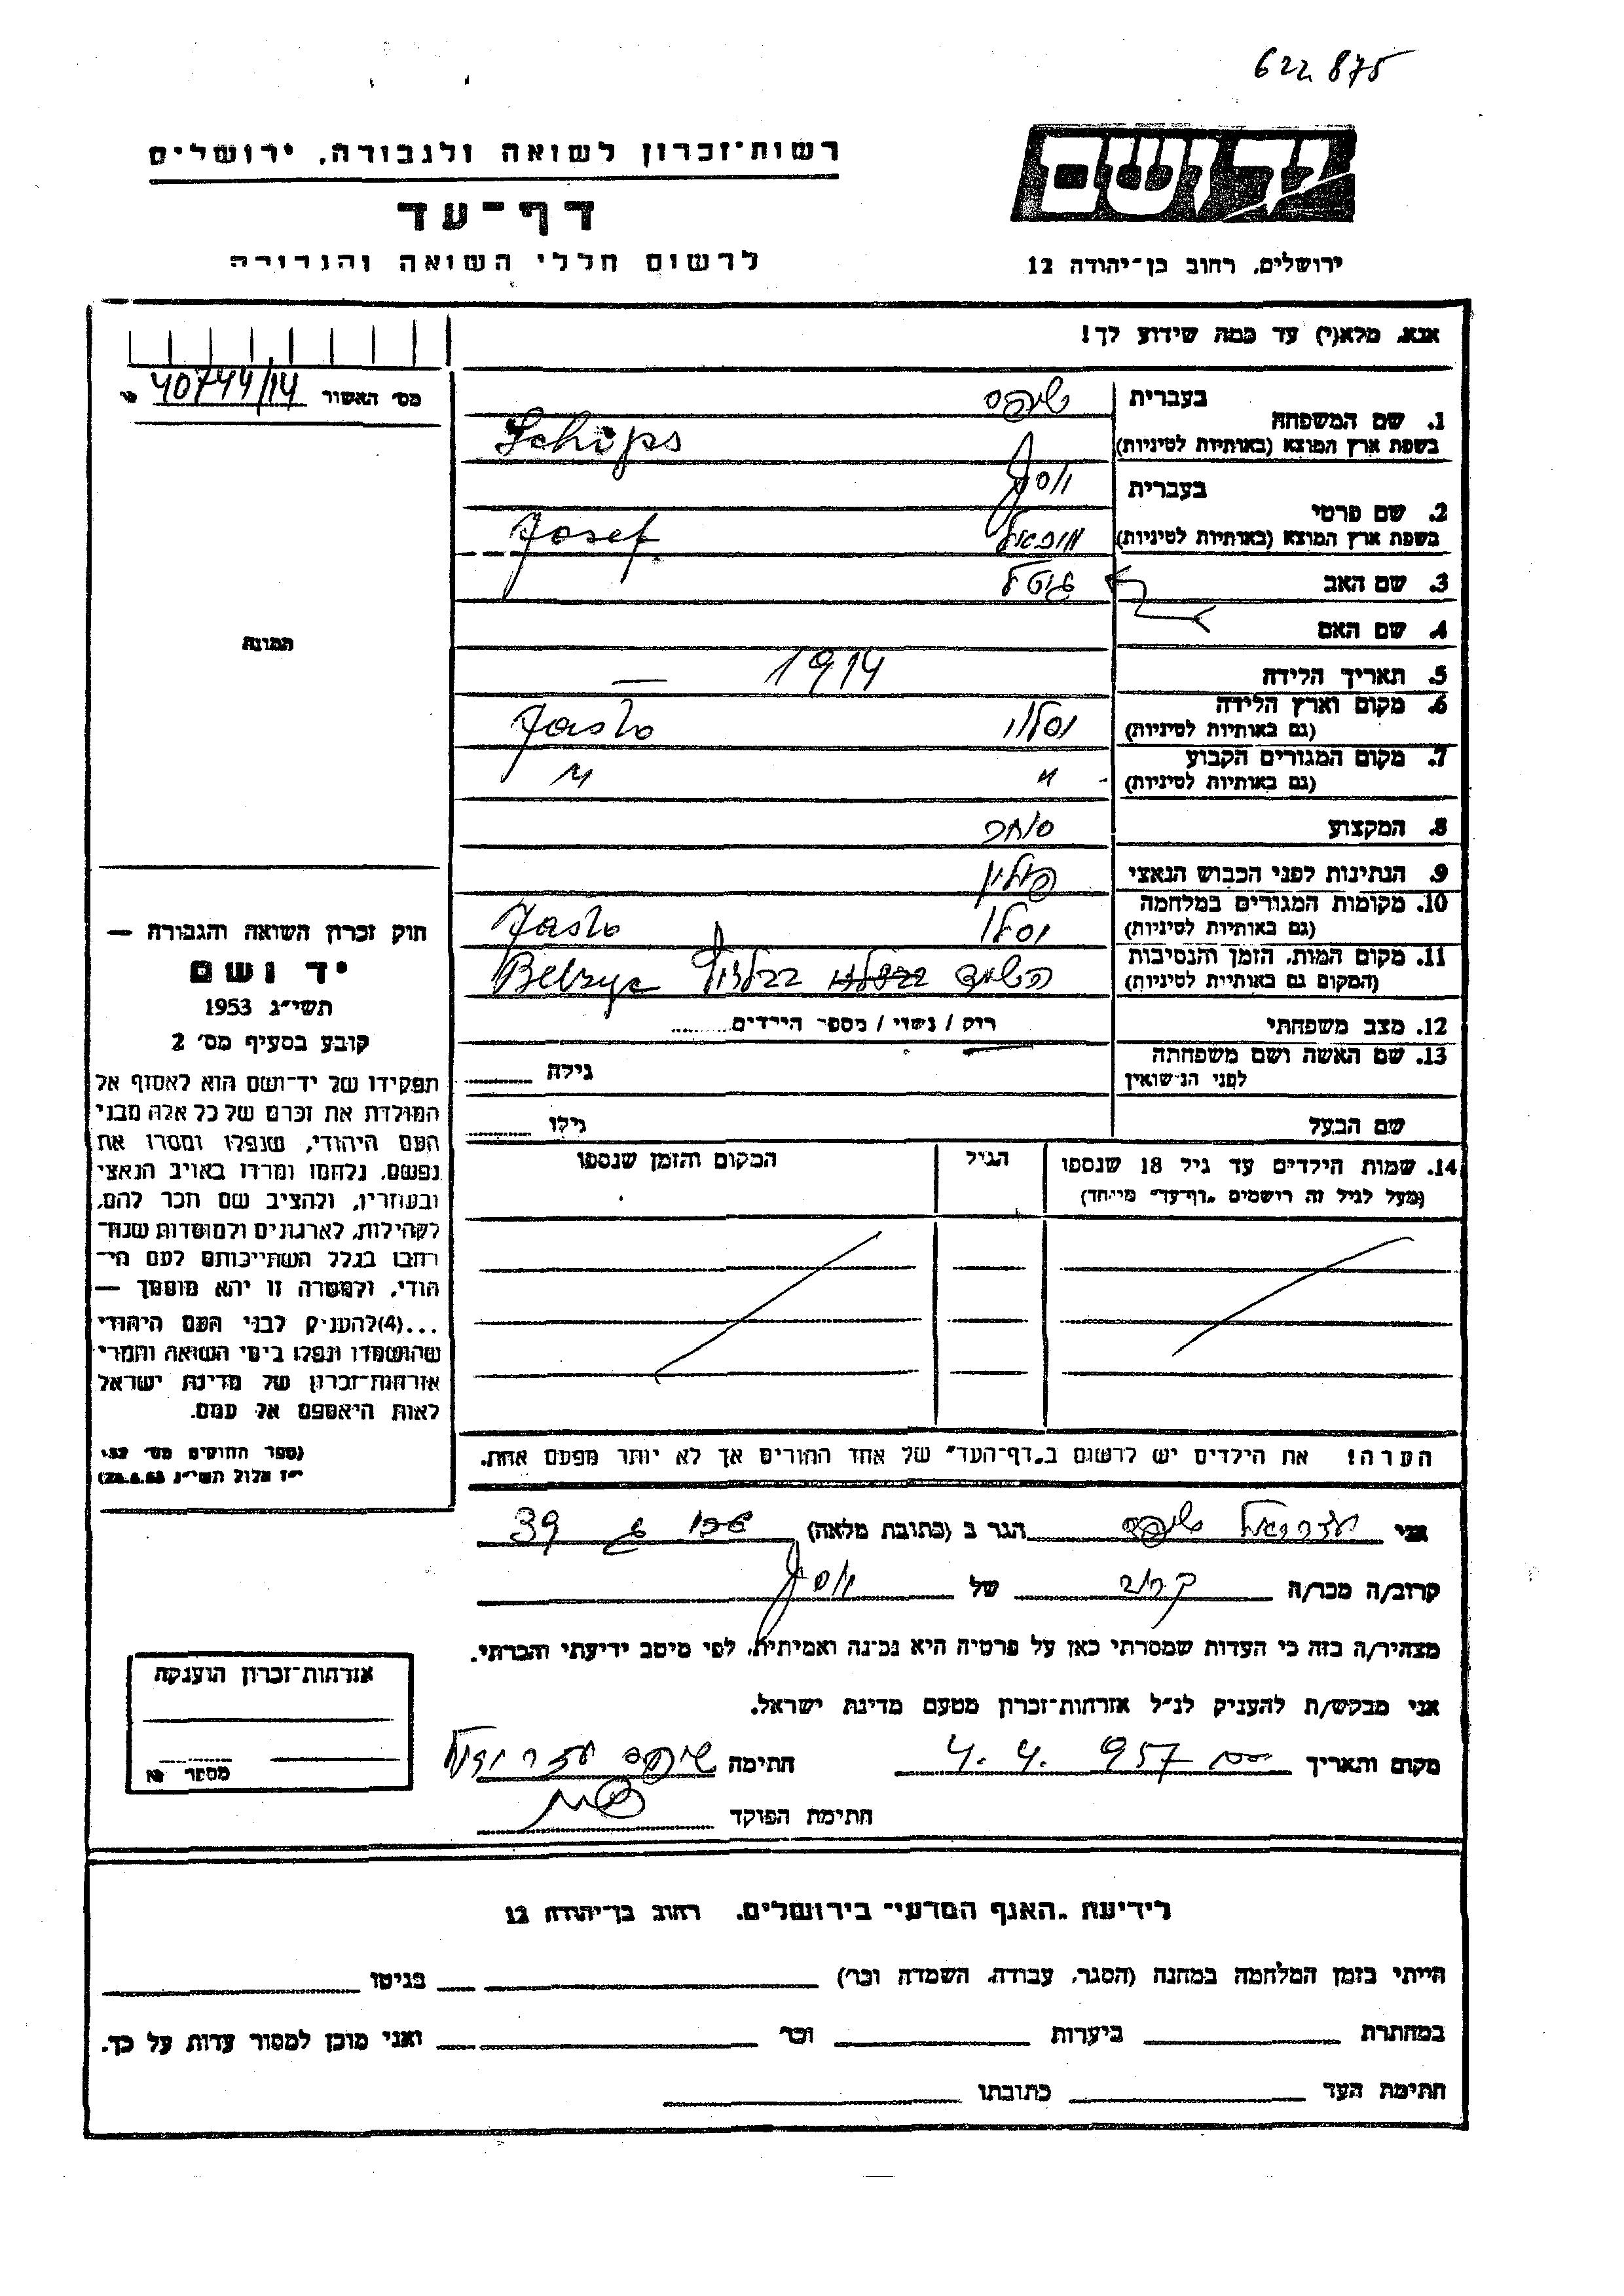 622875
יד ושם
רשות־זכרון לשואה ולגבורה, ירושלים
דף־עד
לרשום חללי השואה והגבורה
ירושלים, רחוב בן־יהודה 12
אנא, מלא(י) עד כמה שידוע לך!
מס׳ האשור 40744/14
1. שם המשפחה בעברית שיפס
בשפת ארץ המוצא (באותיות לטיניות) Schips
2. שם פרטי בעברית יוסף
בשפת ארץ המוצא (באותיות לטיניות) Josef
3. שם האב
4. שם האם
5. תאריך הלידה 1914 —
6. מקום וארץ הלידה יסלו Jaslo
(גם באותיות לטיניות)
7. מקום המגורים הקבוע " "
(גם באותיות לטיניות)
8. המקצוע סוחר
9. הנתינות לפני הכבוש הנאצי פולין
10. מקומות המגורים במלחמה יסלו Jaslo
(גם באותיות לטיניות)
11. מקום המות, הזמן והנסיבות Belzyc
(המקום גם באותיות לטיניות)
12. מצב משפחתי רווק / נשוי / מספר הילדים
13. שם האשה ושם משפחתה גילה
לפני הנישואין
שם הבעל גילו
14. שמות הילדים עד גיל 18 שנספו הגיל המקום והזמן שנספו
(מעל לגיל זה רושמים "דף־עד" מייחד)
הערה! את הילדים יש לרשום ב"דף־העד" של אחד ההורים אך לא יותר מפעם אחת.
תמונה
חוק זכרון השואה והגבורה —
יד ושם
תשי״ג 1953
קובע בסעיף מס׳ 2
תפקידו של יד־ושם הוא לאסוף אל
המולדת את זכרם של כל אלה מבני
העם היהודי, שנפלו ומסרו את
נפשם, נלחמו ומרדו באויב הנאצי
ובעוזריו, ולהציב שם וזכר להם,
לקהילות, לארגונים ולמוסדות שנח־
רבו בגלל השתייכותם לעם הי־
הודי, ולמטרה זו יהא מוסמך —
...(4)להעניק לבני העם היהודי
שהושמדו ונפלו בימי השואה והמרי
אזרחות־זכרון של מדינת ישראל
לאות היאספם אל עמם.
(ספר החוקים מס׳ 132,
י״ז אלול תשי״ג 28.8.53)
אני שיפס הגר ב (כתובת מלאה) 39
קרוב/ה מכר/ה קרוב של יוסף
מצהיר/ה בזה כי העדות שמסרתי כאן על פרטיה היא נכונה ואמיתית, לפי מיטב ידיעתי והכרתי.
אני מבקש/ת להעניק לנ״ל אזרחות־זכרון מטעם מדינת ישראל.
מקום ותאריך 4.4.957 חתימה שיפס
חתימת הפוקד
אזרחות־זכרון הוענקה
מספר
לידיעת "האגף המדעי" בירושלים, רחוב בן־יהודה 12
הייתי בזמן המלחמה במחנה (הסגר, עבודה, השמדה וכו׳) בגיטו
במחתרת ביערות וכו׳ ואני מוכן למסור עדות על כך.
חתימת העד כתובתו